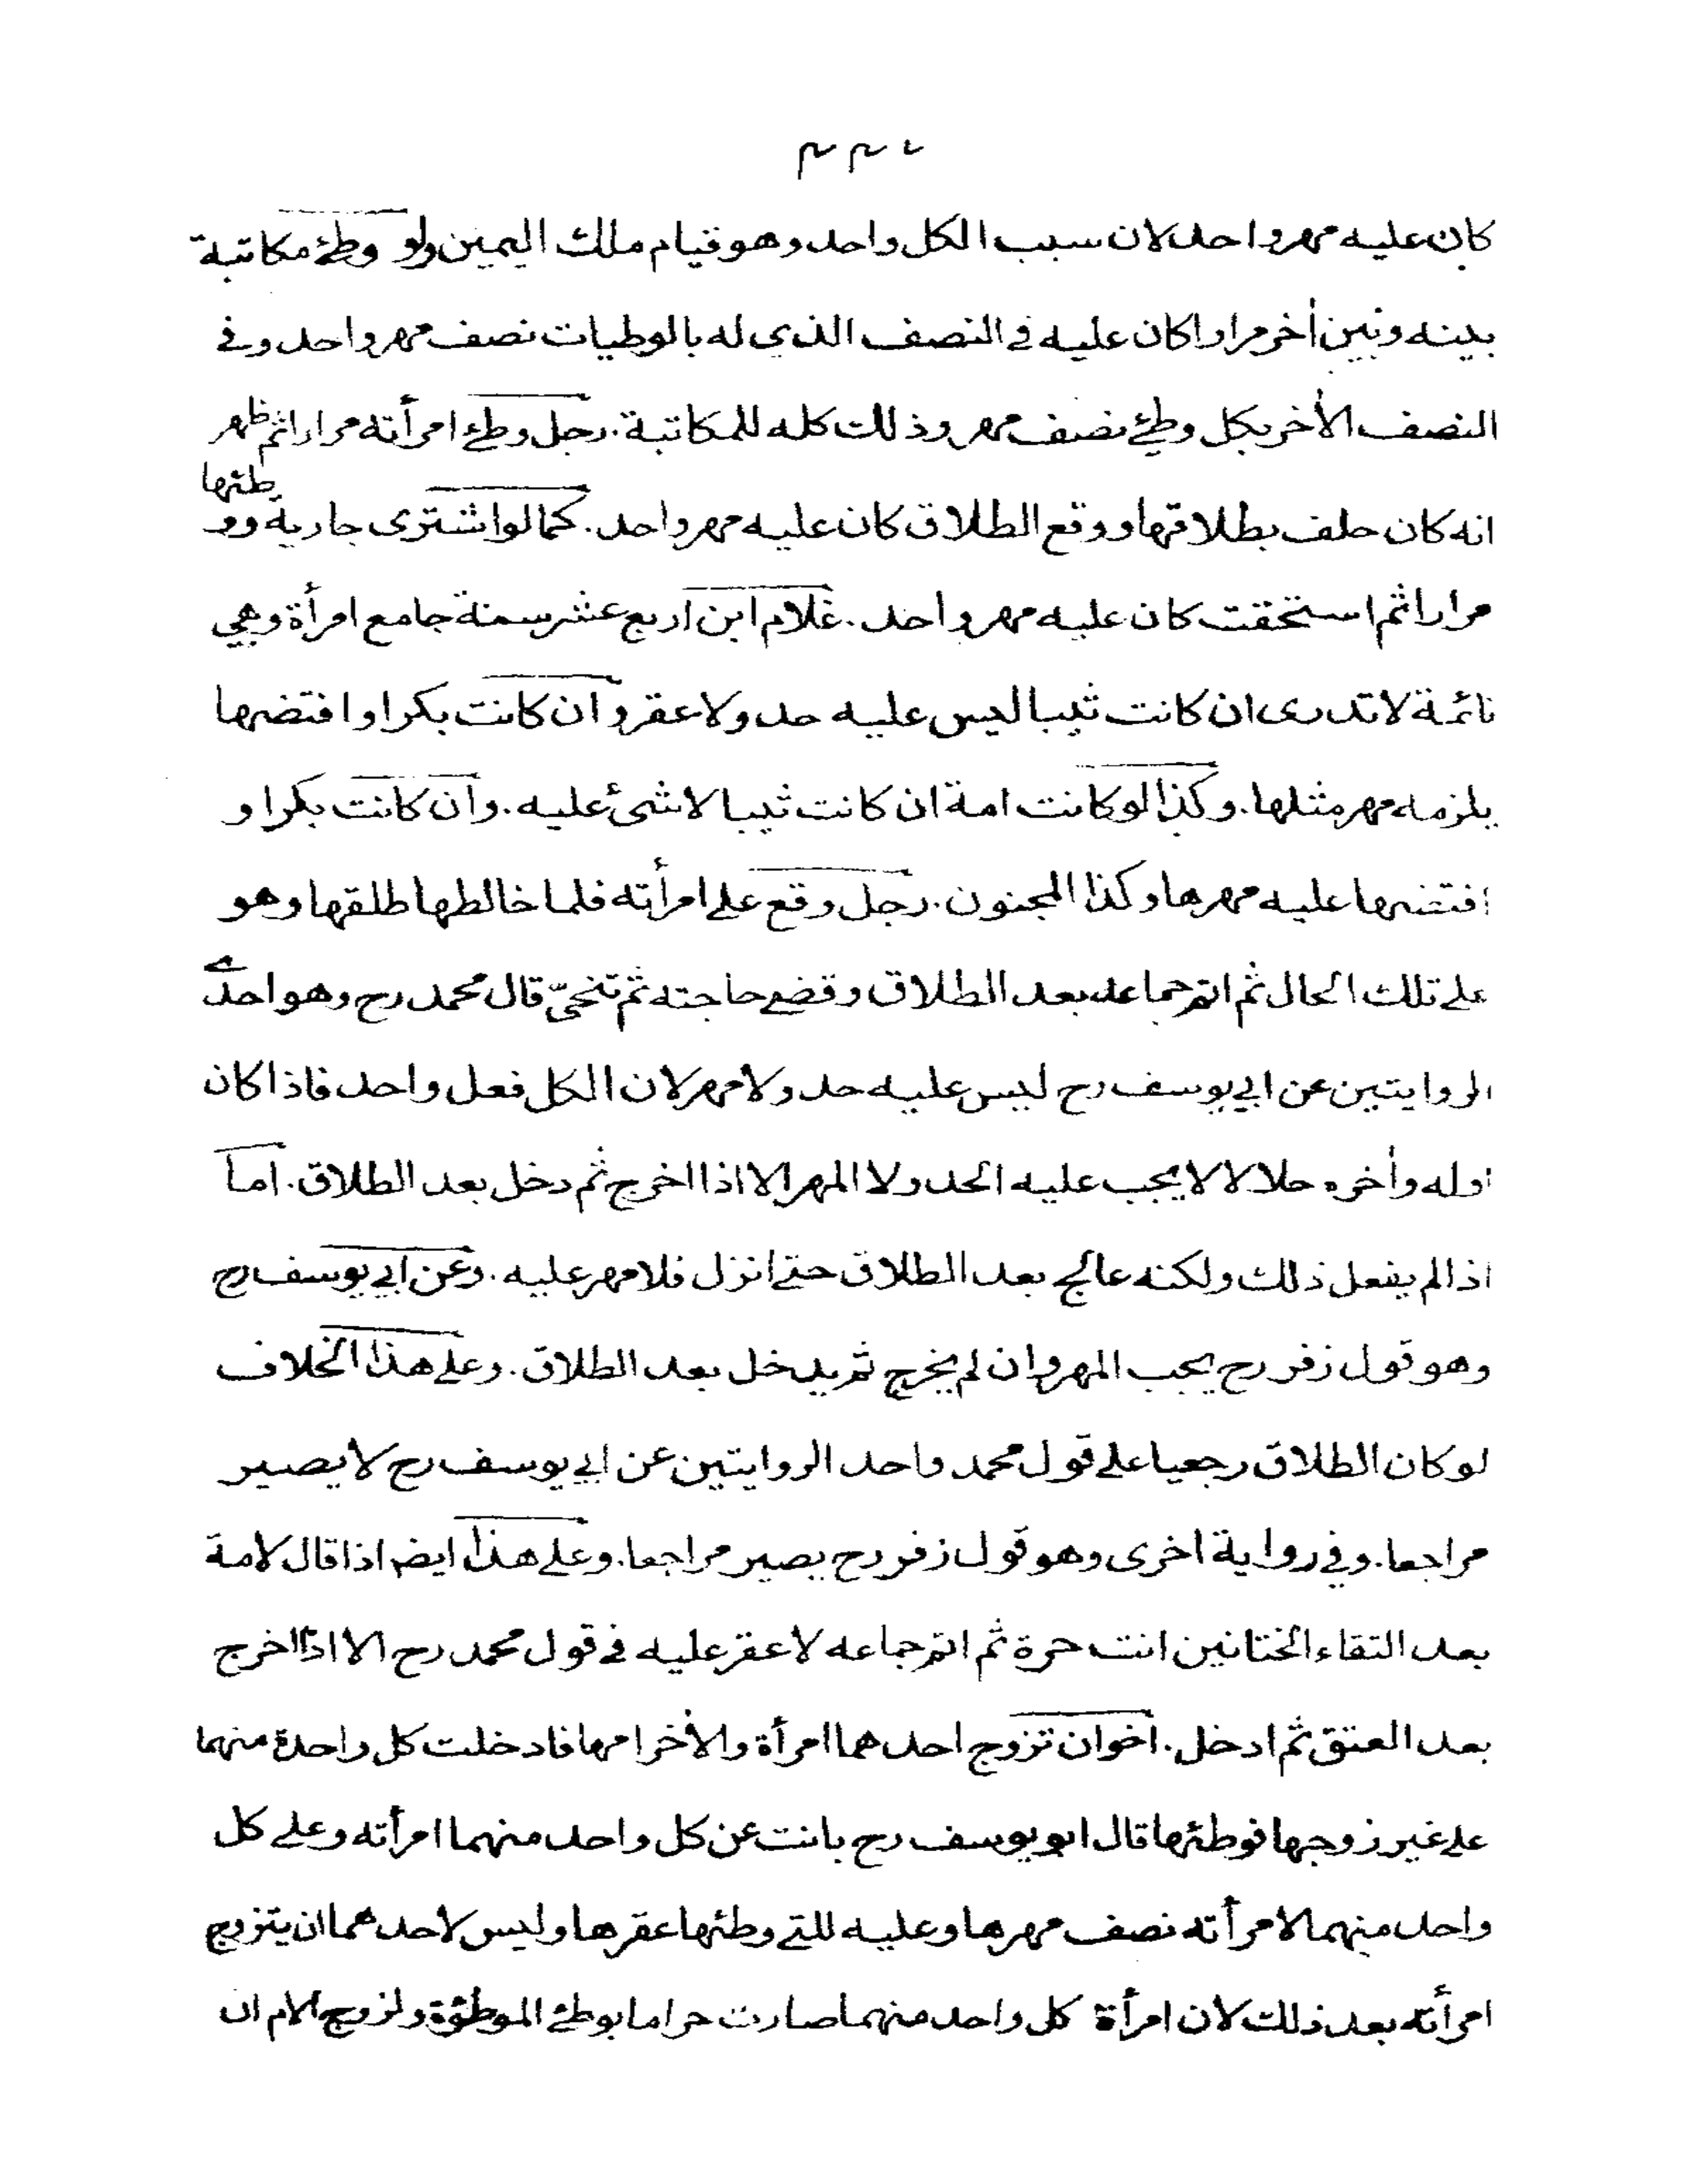 ٢٣٣
كان عليه مهر واحد لان سبب الكل واحد وهو قيام ملك اليمين ولو وطئ مكاتبة
بينه وبين أخر مرارا كان عليه في النصف الذي له بالوطيات نصف مهر واحد وفي
النصف الأخر بكل وطئ نصف مهر وذلك كله للمكاتبة. رجل وطئ امرأته مرارا ثم ظهر
انه كان حلف بطلاقها ووقع الطلاق كان عليه مهر واحد. كما لو اشترى جارية ووطئها
مرارا ثم استحقت كان عليه مهر واحد. غلام ابن اربع عشر سنة جامع امرأة وهي
نائمة لا تدرى ان كانت ثيبا ليس عليه حد ولا عقر وان كانت بكرا وافتضها
يلزمه مهر مثلها. وكذا لو كانت امة ان كانت ثيبا لا شئ عليه. وان كانت بكرا و
افتضها عليه مهرها وكذا المجنون. رجل وقع على امرأته فلما خالطها طلقها وهو
على تلك الحال ثم اتم جماعه بعد الطلاق وقضى حاجته ثم تنحىّ قال محمد رح وهو احدى
الروايتين عن ابي يوسف رح ليس عليه حد ولا مهر لان الكل فعل واحد فاذا كان
اوله وأخره حلالا لا يجب عليه الحد ولا المهر الا اذا اخرج ثم دخل بعد الطلاق. اما
اذا لم يفعل ذلك ولكنه عالج بعد الطلاق حتى انزل فلا مهر عليه. وعن ابي يوسف رح
وهو قول زفر رح يجب المهر وان لم يخرج ثم يدخل بعد الطلاق. وعلى هذا الخلاف
لو كان الطلاق رجعيا على قول محمد واحد الروايتين عن ابي يوسف رح لا يصير
مراجعا. وفي رواية اخرى وهو قول زفر رح يصير مراجعا. وعلى هذا ايضا اذا قال لامة
بعد التقاء الختانين انت حرة ثم اتم جماعه لا عقر عليه في قول محمد رح الا اذا اخرج
بعد العتق ثم ادخل. اخوان تزوج احدهما امرأة والأخر امها فادخلت كل واحدة منهما
على غير زوجها فوطئها قال ابو يوسف رح بانت عن كل واحد منهما امرأته وعلى كل
واحد منهما لامرأته نصف مهرها وعليه للتي وطئها عقرها وليس لاحدهما ان يتزوج
امرأته بعد ذلك لان امرأة كل واحد منهما صارت حراما بوطئ الموطؤة ولزوج الام ان